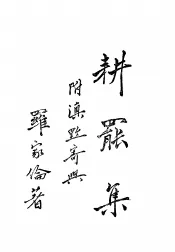 耕罷集
附滇黔寄興
羅家倫著